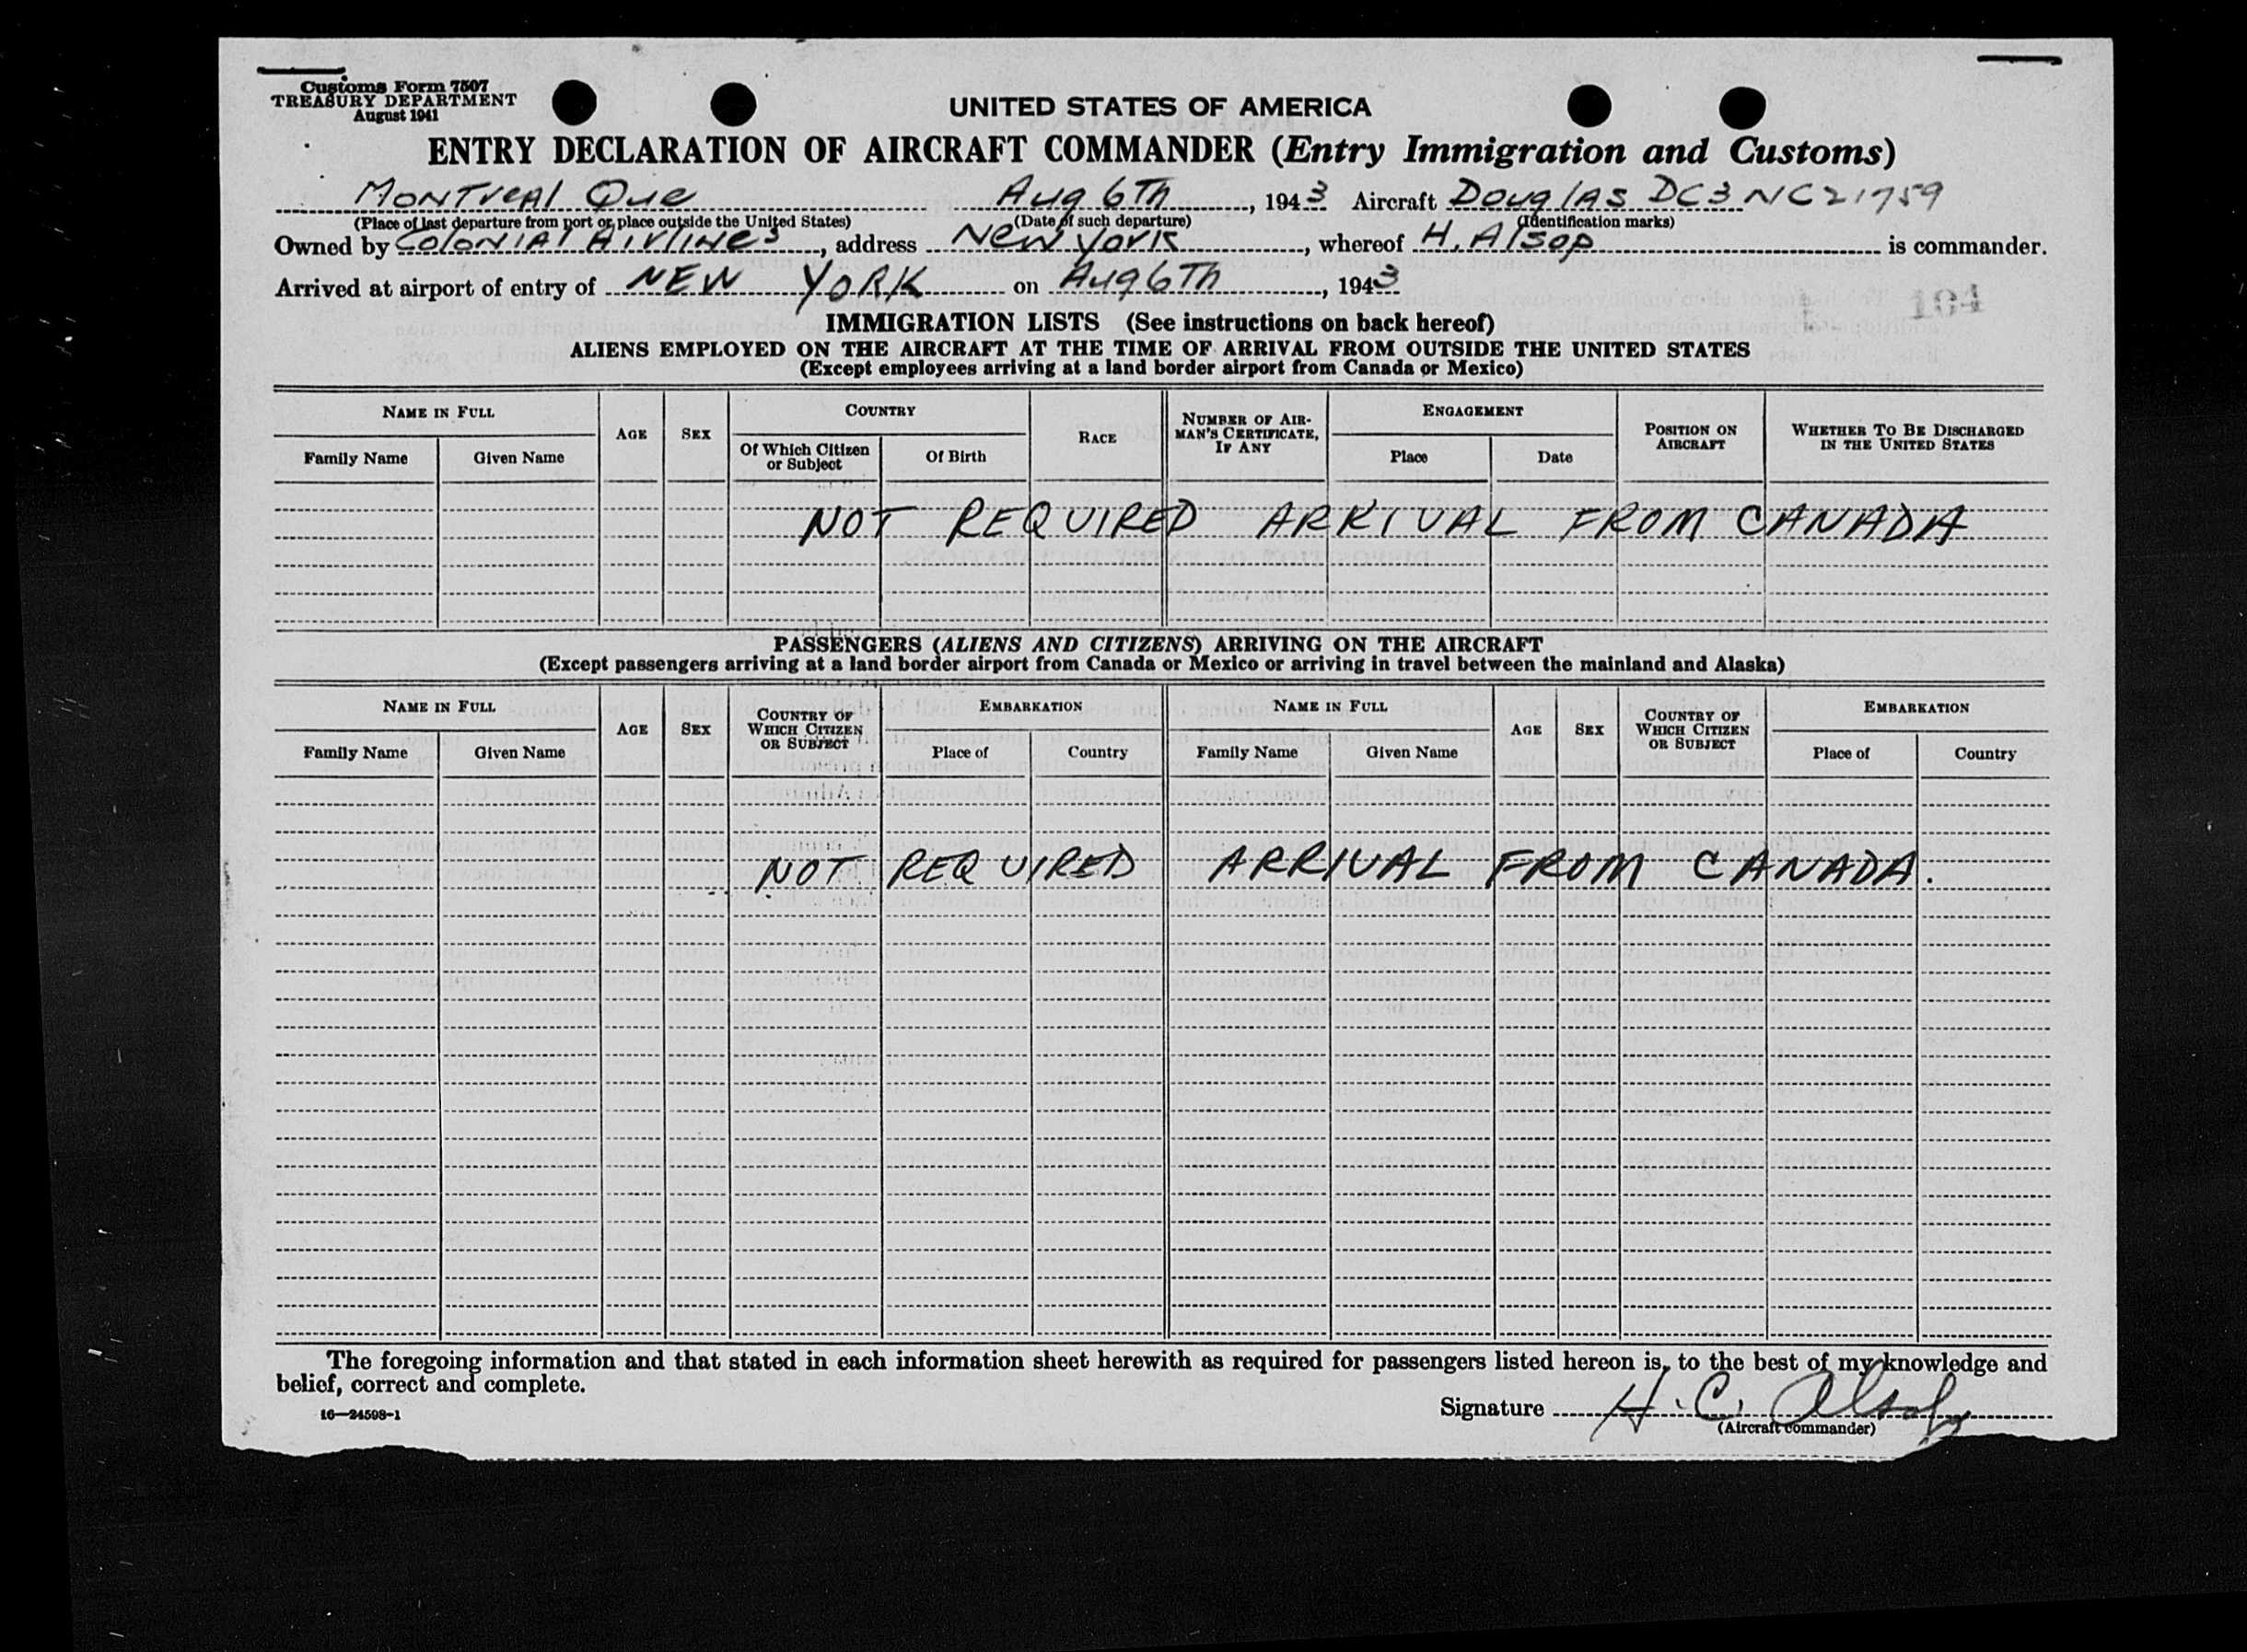 Customs Form 7507
TREASURY DEPARTMENT
August 1941
UNITED STATES OF AMERICA
ENTRY DECLARATION OF AIRCRAFT COMMANDER (Entry Immigration and Customs)
Montreal Que Aug 6Th, 1943 Aircraft Douglas DC3 NC21759
(Place of last departure from port or place outside the United States) (Date of such departure) (Identification marks)
Owned by Colonial Airlines, address New York, whereof H. Alsop is commander.
Arrived at airport of entry of NEW YORK on Aug 6Th, 1943
194
IMMIGRATION LISTS (See instructions on back hereof)
ALIENS EMPLOYED ON THE AIRCRAFT AT THE TIME OF ARRIVAL FROM OUTSIDE THE UNITED STATES
(Except employees arriving at a land border airport from Canada or Mexico)
NAME IN FULL AGE SEX COUNTRY RACE NUMBER OF AIRMAN'S CERTIFICATE, IF ANY ENGAGEMENT POSITION ON AIRCRAFT WHETHER TO BE DISCHARGED IN THE UNITED STATES
Family Name Given Name Of Which Citizen or Subject Of Birth Place Date
NOT REQUIRED ARRIVAL FROM CANADA
PASSENGERS (ALIENS AND CITIZENS) ARRIVING ON THE AIRCRAFT
(Except passengers arriving at a land border airport from Canada or Mexico or arriving in travel between the mainland and Alaska)
NAME IN FULL AGE SEX COUNTRY OF WHICH CITIZEN OR SUBJECT EMBARKATION NAME IN FULL AGE SEX COUNTRY OF WHICH CITIZEN OR SUBJECT EMBARKATION
Family Name Given Name Place of Country Family Name Given Name Place of Country
NOT REQUIRED ARRIVAL FROM CANADA.
The foregoing information and that stated in each information sheet herewith as required for passengers listed hereon is, to the best of my knowledge and
belief, correct and complete.
16—24598-1
Signature H. C. Alsop
(Aircraft commander)